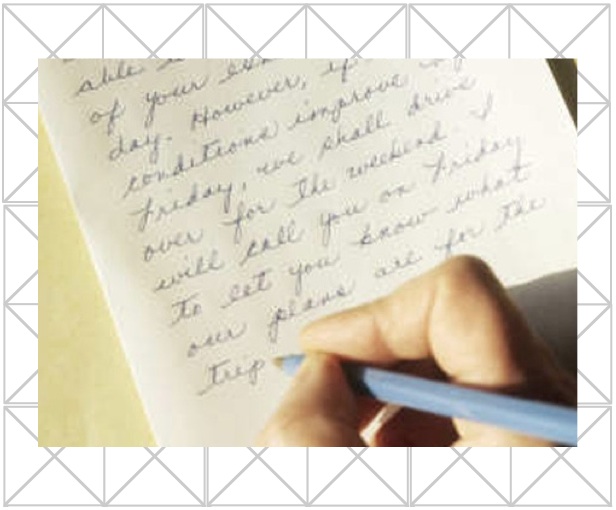 able
of your
day. However, if
conditions improve by
Friday, we shall drive
over for the weekend. I
will call you on Friday
to let you know what
our plans are for the
trip